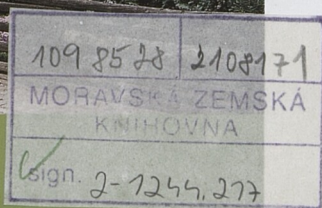 1098528 2108171
MORAVSKÁ ZEMSKÁ
KNIHOVNA
sign. 2-1244.217